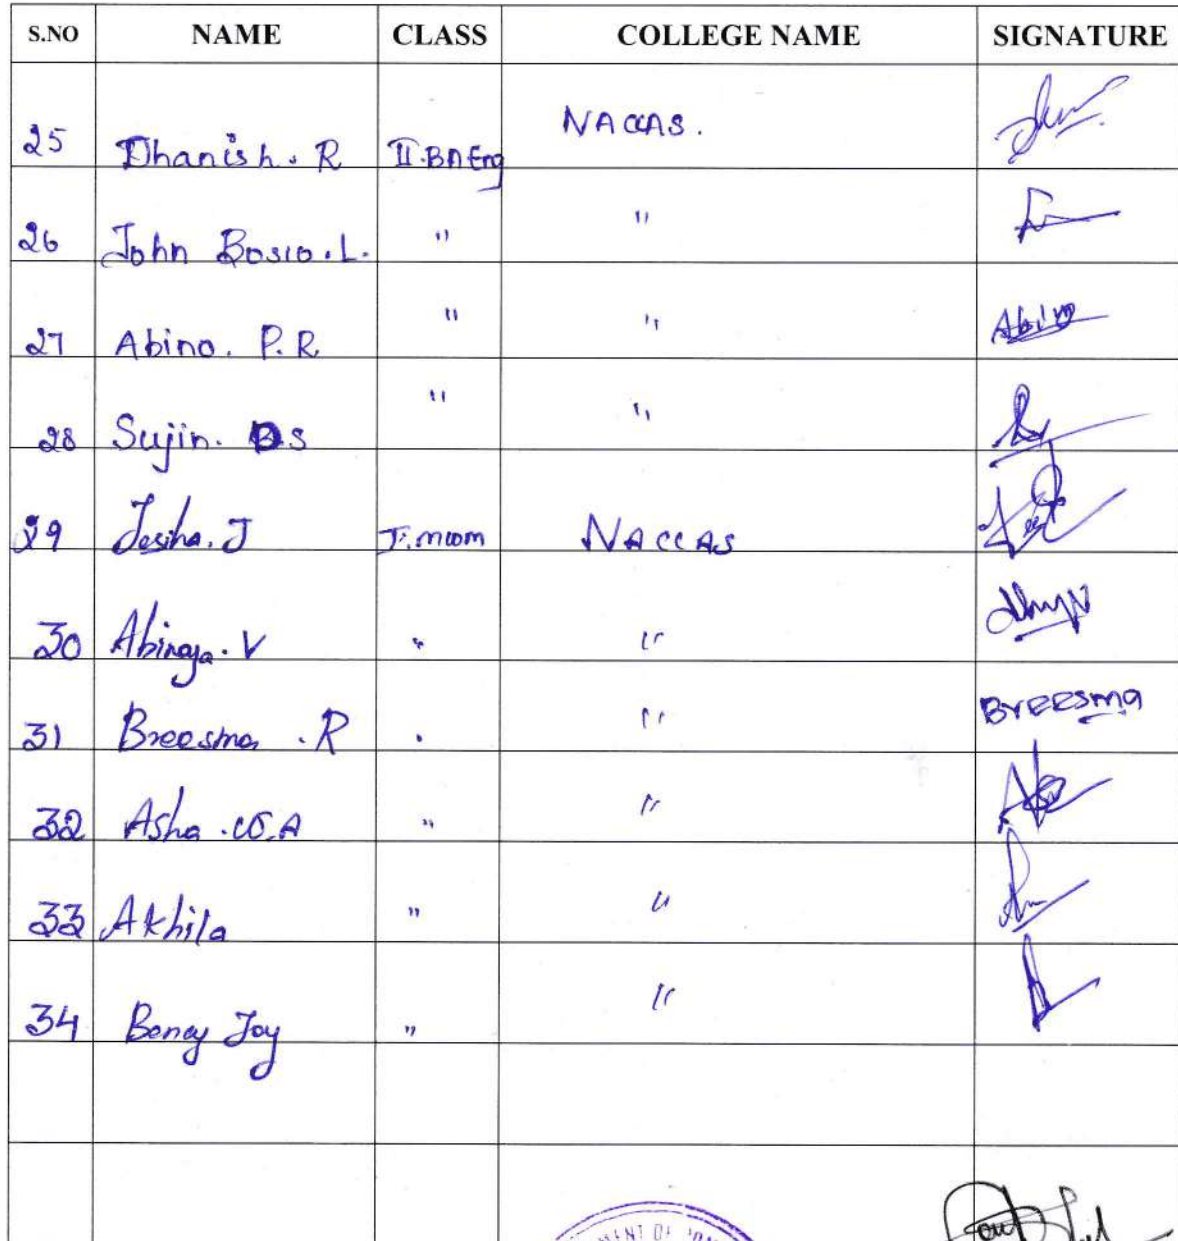 S.NO NAME CLASS COLLEGE NAME SIGNATURE
25 Dhanish. R II.BA Eng NACCAS.
26 John Bosco.L. " "
27 Abino. P.R. " " Abino
28 Sujin. S " "
29 Jesiha. J I.mcom NACCAS
30 Abinaya. V " "
31 Breesma .R " " Breesma
32 Asha .A " "
33 Akhila " "
34 Boney Joy " "
MENT OF